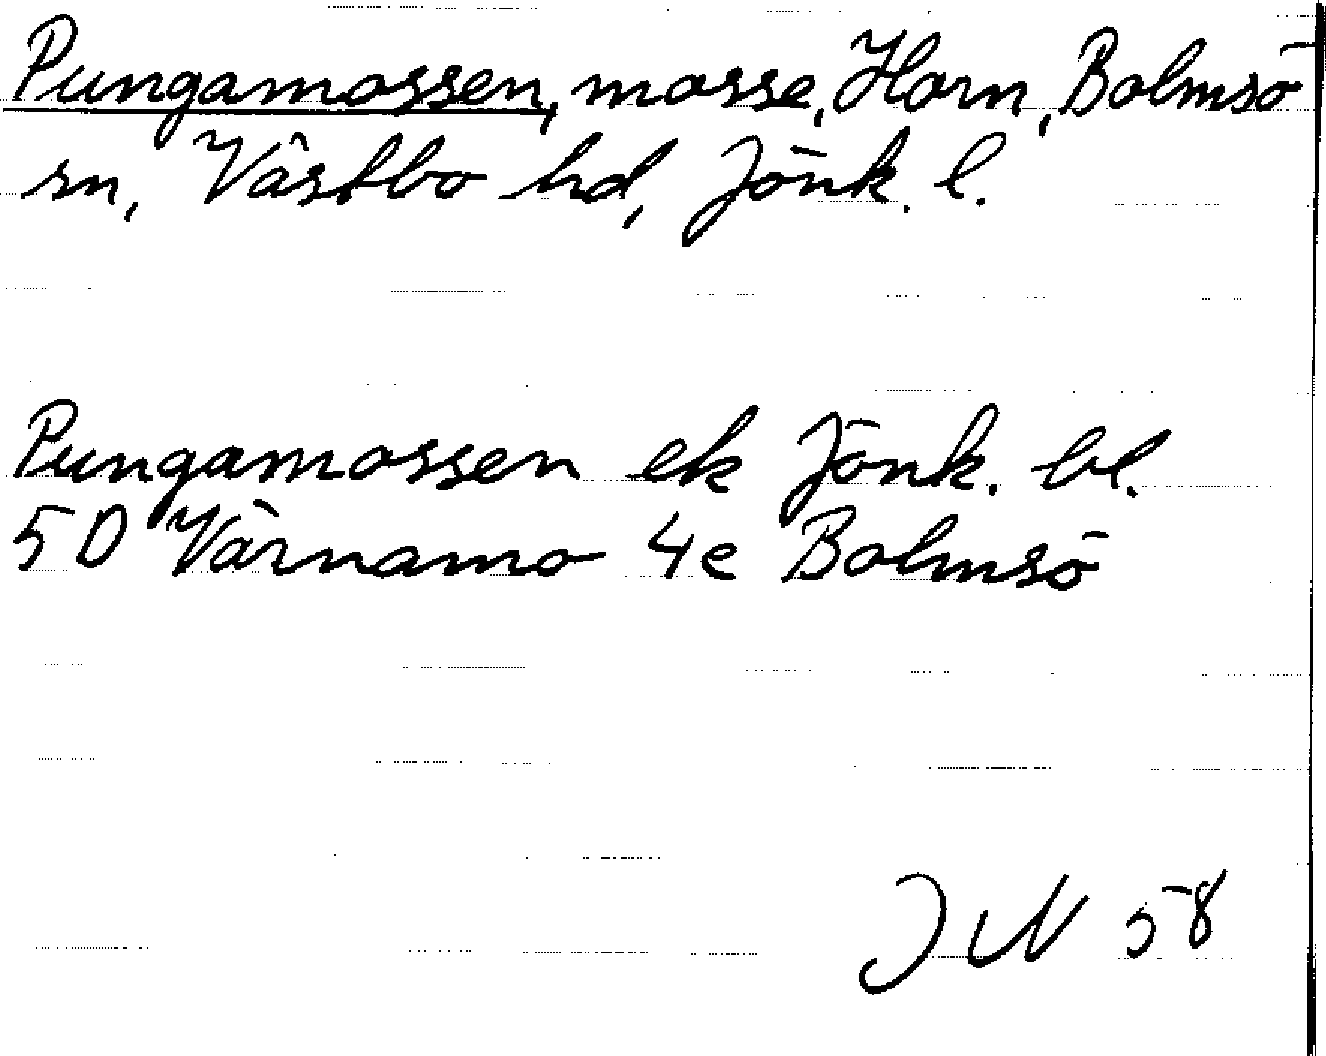 Pungamossen, mosse, Horn, Bolmsö
sn, Västbo hd, Jönk. l.
Pungamossen ek Jönk. bl.
5D Värnamo 4e Bolmsö
58